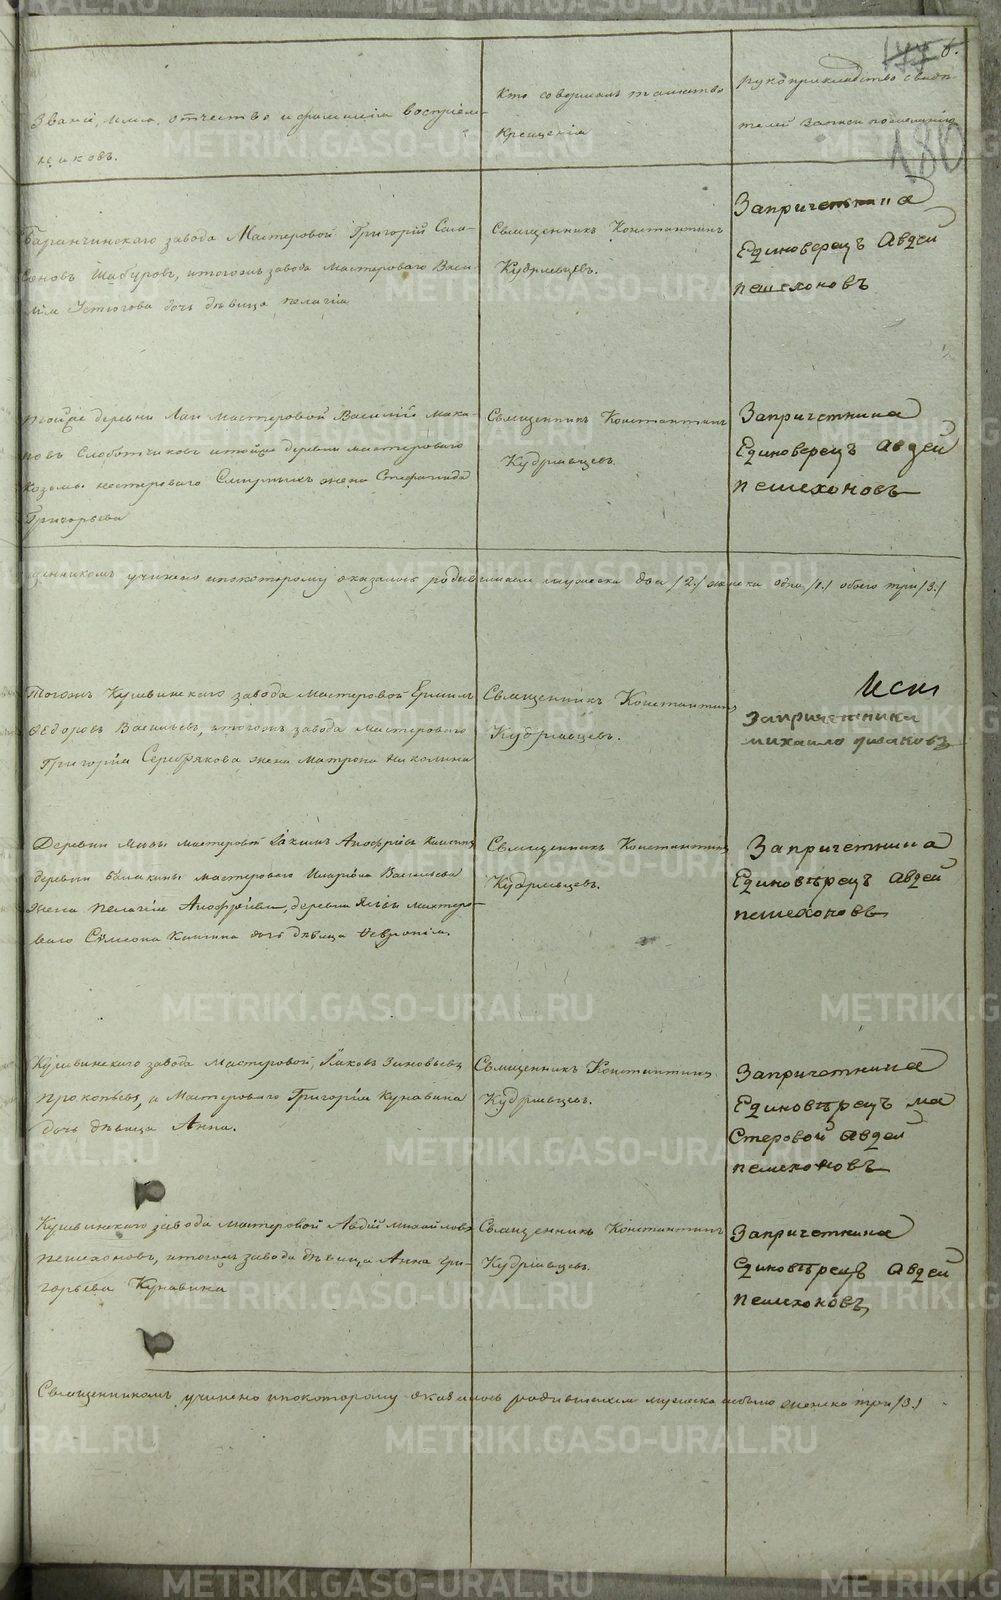 177 6.
180
Званіе, имя, отчество и фамилія воспріем-
никовъ.
Кто совершалъ таинство
Крещенія
рукоприкладство свидѣ-
телей записи по желанію
Баранчинскаго завода Мастеровой Григорій
Шабуровъ, итогожъ завода мастероваго Васи-
лія Устюгова дочь дѣвица Пелагія
Священникъ Константинъ
Кудрявцевъ.
Запричетника
Единоверецъ Авдей
пешехоновъ
тойже деревни Лаи мастеровой Василій Мака-
ровъ Слободчиковъ итойже деревни мастероваго
Козьмы Нестерова Смирныхъ жена Стефанида
Григорьева
Священникъ Константинъ
Кудрявцевъ.
Запричетника
Единоверецъ Авдей
пешехоновъ
щенникомъ учинено ипокоторому оказалось родившихся мужеска два /2/ женска одна /1./ обоего три /3./
Тогожъ Кушвинскаго завода мастеровой Ермилъ
Федоровъ Васильевъ, итогожъ завода мастероваго
Григорія Серебрякова жена Матрона Николина
Священникъ Константинъ
Кудрявцевъ.
Запричетника
михаило
Деревни мастеровой Іакимъ Анофріевъ
деревни Балакины мастероваго Иларіона Васильева
жена Пелагія Анофріева, деревни мастеро-
ваго Симеона дочь дѣвица Февронія.
Священникъ Константинъ
Кудрявцевъ.
Запричетника
Единовѣрецъ Авдей
пешехоновъ
Кушвинскаго завода Мастеровой, Іаковъ Зиновьевъ
Прокопьевъ, а Мастероваго Григорія Кунавина
дочь дѣвица Анна.
Священникъ Константинъ
Кудрявцевъ.
Запричетника
Единовѣрецъ ма
стеровой Авдей
пешехоновъ
Кушвинскаго завода Мастеровой Авдій Михайловъ
Пешехоновъ, итогожъ завода дѣвица Анна Гри-
горьева Кунавина
Священникъ Константинъ
Кудрявцевъ.
Запричетника
Единовѣрецъ Авдей
пешехоновъ
Священникомъ учинено ипокоторому оказалось родившихся мужеска небыло женска три /3./
METRIKI.GASO-URAL.RU